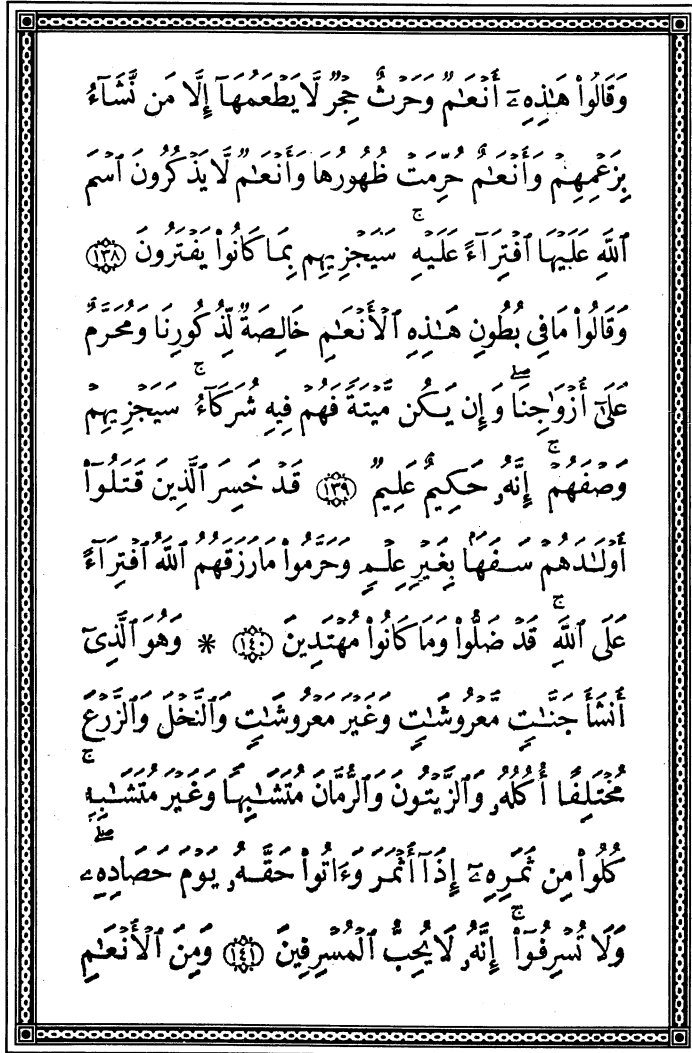 وَقَالُوا۟ هَـٰذِهِۦٓ أَنْعَـٰمٌ وَحَرْثٌ حِجْرٌ لَّا يَطْعَمُهَآ إِلَّا مَن نَّشَآءُ
بِزَعْمِهِمْ وَأَنْعَـٰمٌ حُرِّمَتْ ظُهُورُهَا وَأَنْعَـٰمٌ لَّا يَذْكُرُونَ ٱسْمَ
ٱللَّهِ عَلَيْهَا ٱفْتِرَآءً عَلَيْهِ ۚ سَيَجْزِيهِم بِمَا كَانُوا۟ يَفْتَرُونَ ﴿١٣٨﴾
وَقَالُوا۟ مَا فِى بُطُونِ هَـٰذِهِ ٱلْأَنْعَـٰمِ خَالِصَةٌ لِّذُكُورِنَا وَمُحَرَّمٌ
عَلَىٰٓ أَزْوَٰجِنَا ۖ وَإِن يَكُن مَّيْتَةً فَهُمْ فِيهِ شُرَكَآءُ ۚ سَيَجْزِيهِمْ
وَصْفَهُمْ ۚ إِنَّهُۥ حَكِيمٌ عَلِيمٌ ﴿١٣٩﴾ قَدْ خَسِرَ ٱلَّذِينَ قَتَلُوٓا۟
أَوْلَـٰدَهُمْ سَفَهًۢا بِغَيْرِ عِلْمٍ وَحَرَّمُوا۟ مَا رَزَقَهُمُ ٱللَّهُ ٱفْتِرَآءً
عَلَى ٱللَّهِ ۚ قَدْ ضَلُّوا۟ وَمَا كَانُوا۟ مُهْتَدِينَ ﴿١٤٠﴾ * وَهُوَ ٱلَّذِىٓ
أَنشَأَ جَنَّـٰتٍ مَّعْرُوشَـٰتٍ وَغَيْرَ مَعْرُوشَـٰتٍ وَٱلنَّخْلَ وَٱلزَّرْعَ
مُخْتَلِفًا أُكُلُهُۥ وَٱلزَّيْتُونَ وَٱلرُّمَّانَ مُتَشَـٰبِهًا وَغَيْرَ مُتَشَـٰبِهٍ ۚ
كُلُوا۟ مِن ثَمَرِهِۦٓ إِذَآ أَثْمَرَ وَءَاتُوا۟ حَقَّهُۥ يَوْمَ حَصَادِهِۦ ۖ
وَلَا تُسْرِفُوٓا۟ ۚ إِنَّهُۥ لَا يُحِبُّ ٱلْمُسْرِفِينَ ﴿١٤١﴾ وَمِنَ ٱلْأَنْعَـٰمِ